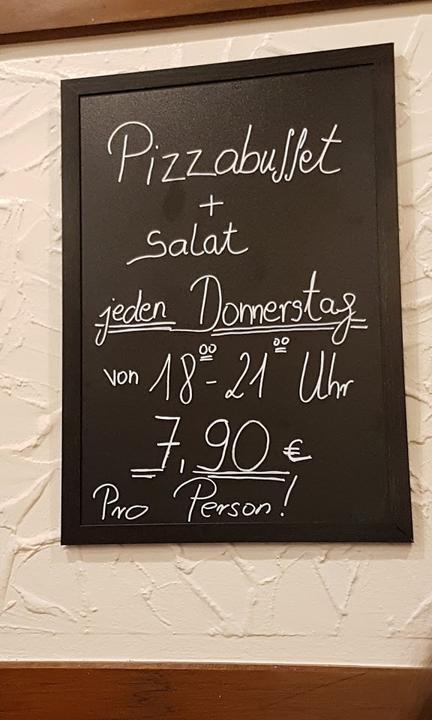 Pizzabuffet
+
Salat
jeden Donnerstag
von 18⁰⁰-21⁰⁰ Uhr
7,90 €
Pro Person!